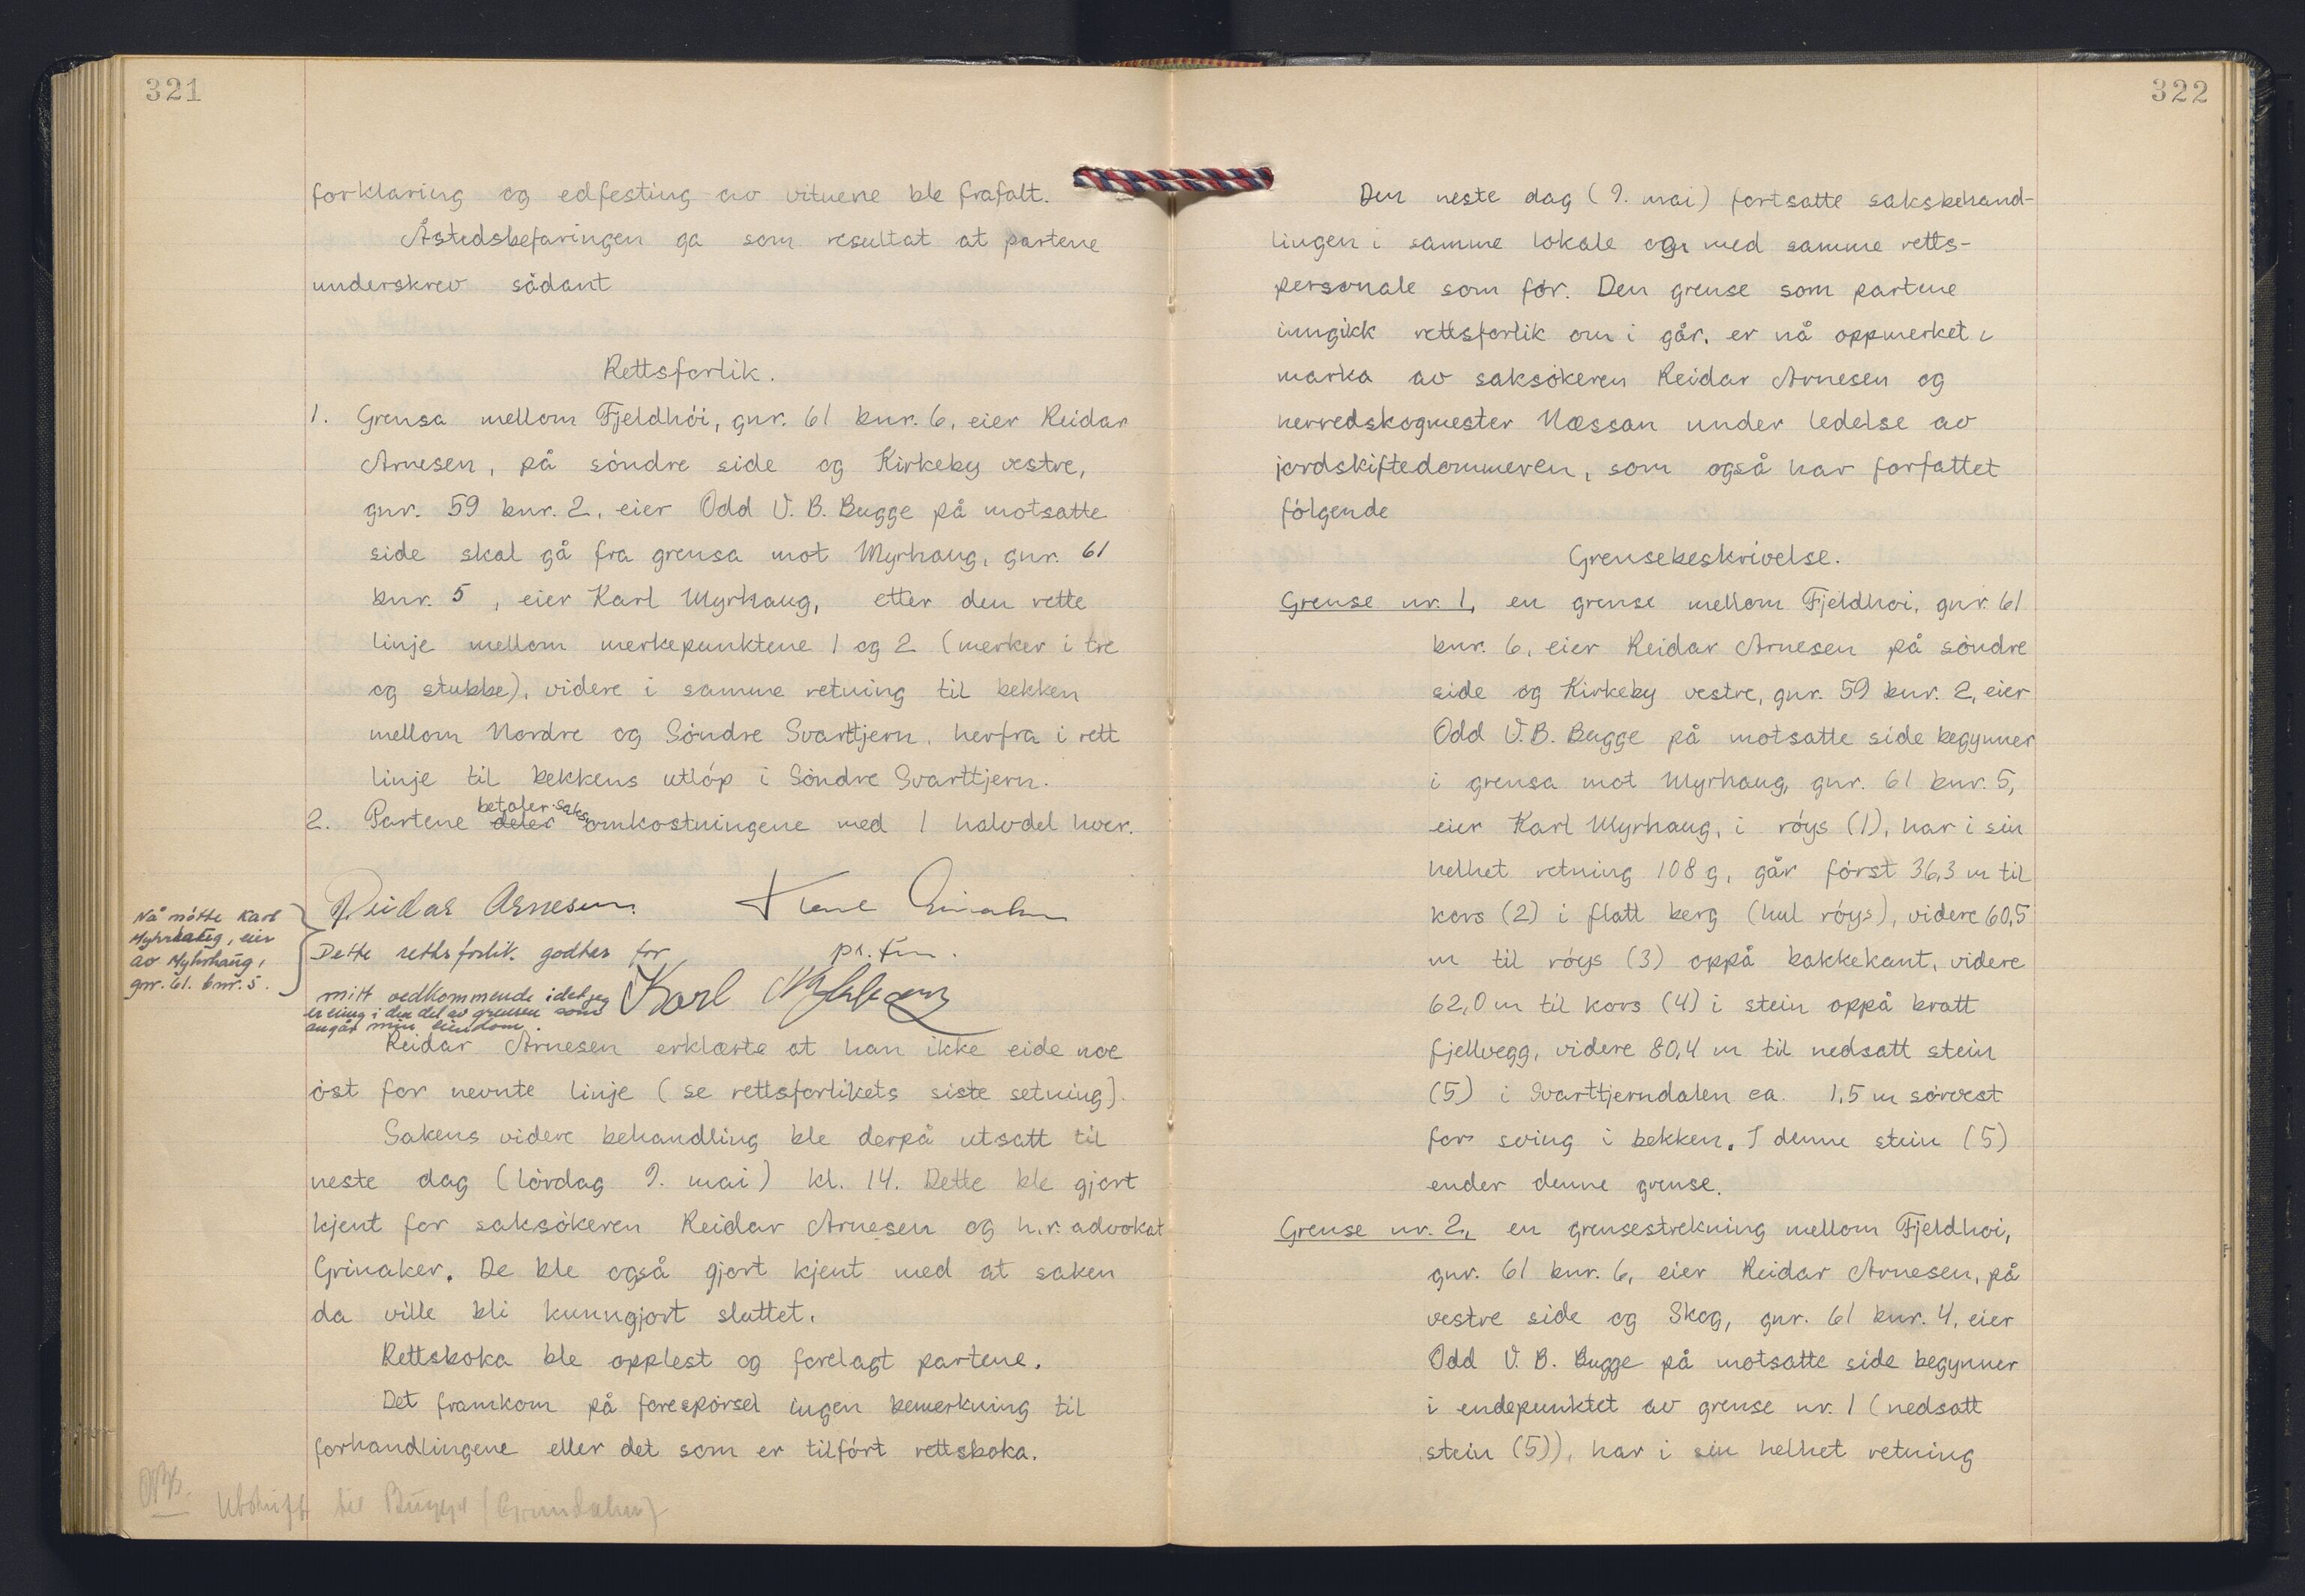 321
forklaring og edfesting av vitnene ble frafalt.
Åstedsbefaringen ga som resultat at partene
underskrev sådant
Rettsforlik.
1. Grensa mellom Fjeldhöi, gnr. 61 bnr. 6, eier Reidar
Arnesen, på söndre side og Kirkeby vestre,
gnr. 59 bnr. 2, eier Odd V. B. Bugge på motsatte
side skal gå fra grensa mot Myrhaug, gnr. 61
bnr. 5, eier Karl Myrhaug, etter den rette
linje mellom merkepunktene 1 og 2 (merker i tre
og stubbe), videre i samme retning til bekken
mellom Nordre og Söndre Svarttjern, herfra i rett
linje til bekkens utlöp i Söndre Svarttjern.
betaler saks
2. Partene deler omkostningene med 1 halvdel hver.
Reidar Arnesen
Nå møtte Karl
Myhrhaug, eier
av Myhrhaug,
gnr. 61. bnr. 5.
Dette rettsforlik godtas for
mitt vedkommende idet jeg Karl Myhrhaug
er enig i den del av grensen som
angår min eiendom.
Reidar Arnesen erklærte at han ikke eide noe
öst for nevnte linje (se rettsforlikets siste setning).
Sakens videre behandling ble derpå utsatt til
neste dag (lördag 9. mai) kl. 14. Dette ble gjort
kjent for saksökeren Reidar Arnesen og h.r. advokat
Grinaker. De ble også gjort kjent med at saken
da ville bli kunngjort sluttet.
Rettsboka ble opplest og forelagt partene.
Det framkom på forespörsel ingen bemerkning til
forhandlingene eller det som er tilfört rettsboka.
Utskrift til Bugge (Grindahn)
322
Den neste dag (9. mai) fortsatte saksbehand-
lingen i samme lokale og med samme retts-
personale som för. Den grense som partene
inngikk rettsforlik om i går, er nå oppmerket i
marka av saksökeren Reidar Arnesen og
herredskogmester Næssan under ledelse av
jordskiftedommeren, som også har forfattet
fölgende
Grensebeskrivelse.
Grense nr. 1, en grense mellom Fjeldhoi, gnr. 61
bnr. 6, eier Reidar Arnesen på söndre
side og Kirkeby vestre, gnr. 59 bnr. 2, eier
Odd V. B. Bugge på motsatte side begynner
i grensa mot Myrhaug, gnr. 61 bnr. 5,
eier Karl Myrhaug, i röys (1), har i sin
helhet retning 108 g, går först 36,3 m til
kors (2) i flatt berg (hul röys), videre 60,5
m til röys (3) oppå bakkekant, videre
62,0 m til kors (4) i stein oppå bratt
fjellvegg, videre 80,4 m til nedsatt stein
(5) i Svarttjerndalen ca. 1,5 m sörvest
for sving i bekken. I denne stein (5)
ender denne grense.
Grense nr. 2, en grensestrekning mellom Fjeldhoi,
gnr. 61 bnr. 6, eier Reidar Arnesen, på
vestre side og Skog, gnr. 61 bnr. 4, eier
Odd V. B. Bugge på motsatte side begynner
i endepunktet av grense nr. 1 (nedsatt
stein (5)), har i sin helhet retning